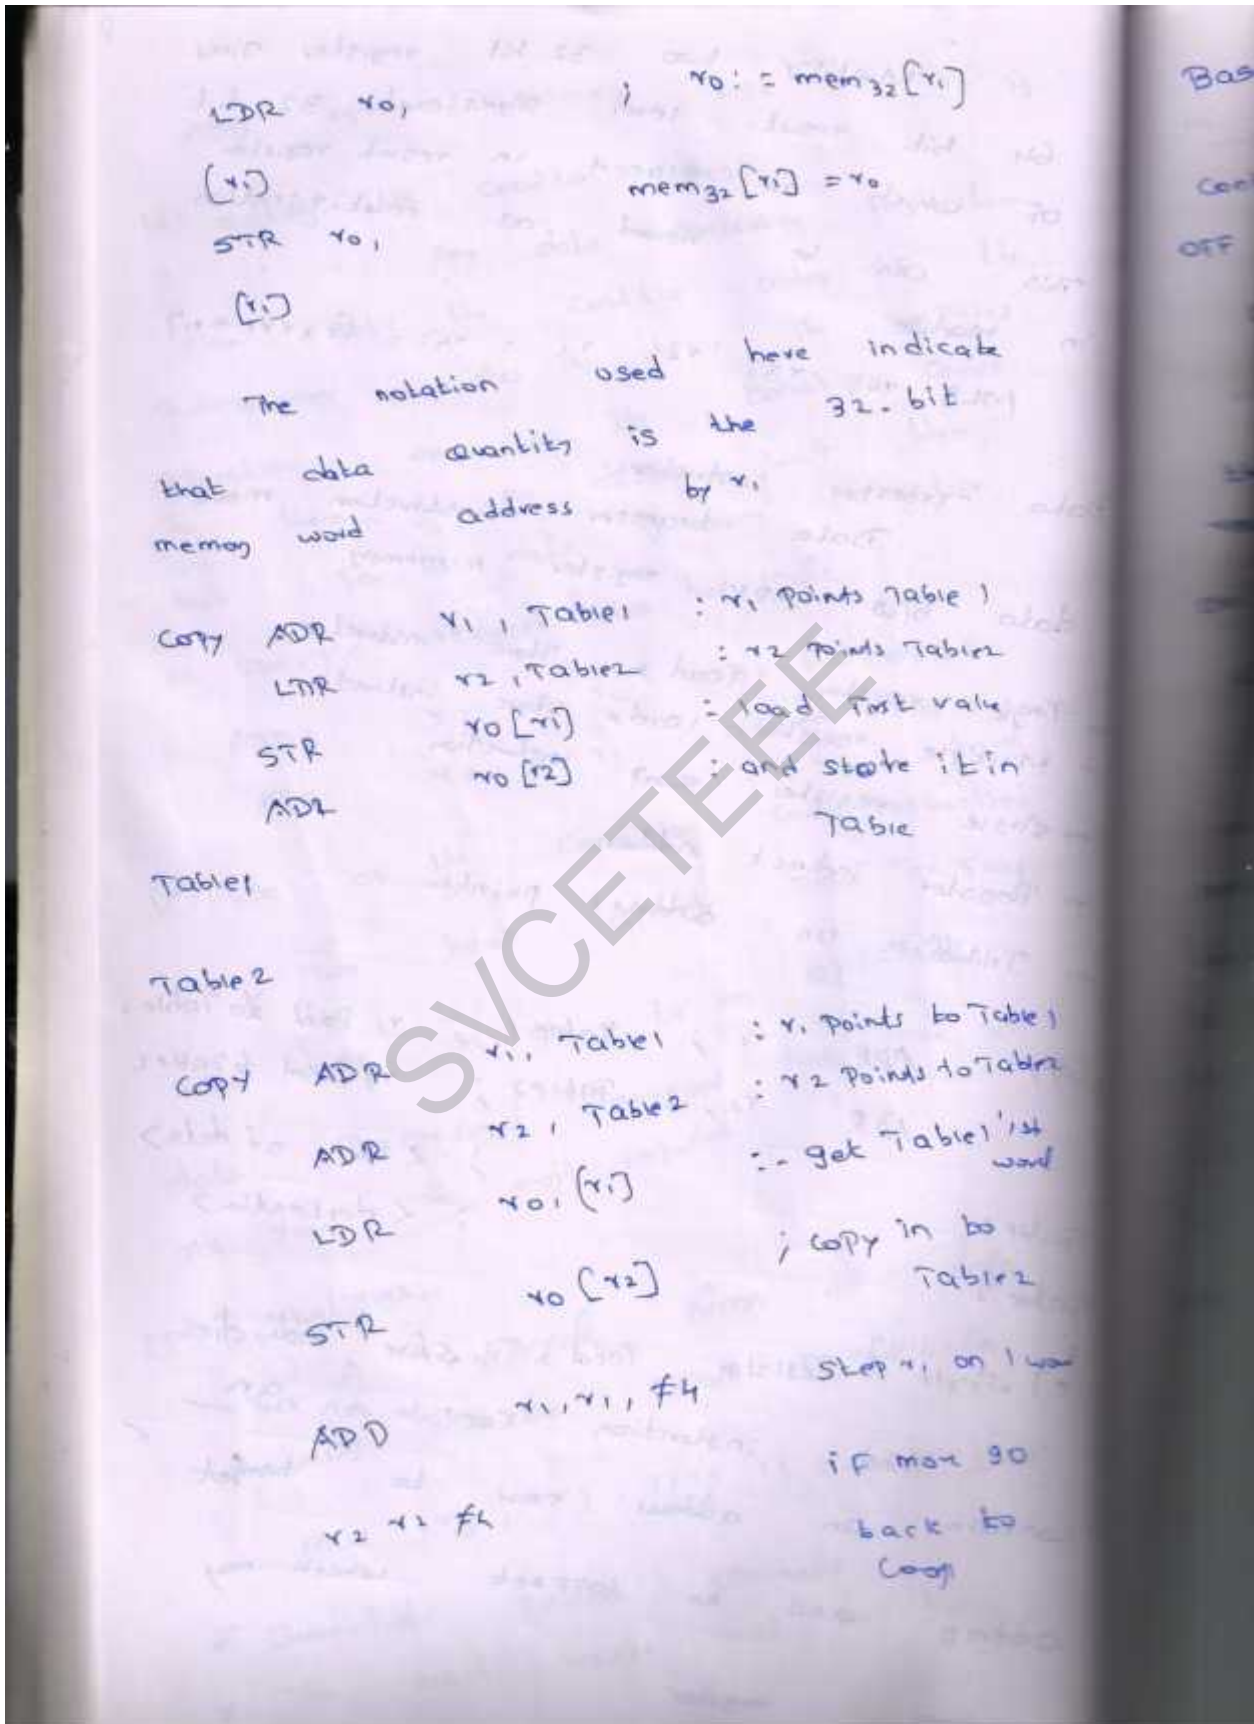 LDR r0, ; r0 : = mem32[r1]
[r1] mem32[r1] = r0
STR r0,
[r1]
The notation used here indicate
that data quantity is the 32-bit
memory word address by r1
Copy ADR r1, Table1 : r1 points Table 1
LDR r2, Table2 : r2 points Table2
STR r0 [r1] : load first value
r0 [r2] : and store it in
Table
Table1
Table2
Copy ADR r1, Table1 : r1 points to Table1
ADR r2, Table2 : r2 points to Table2
LDR r0, [r1] :- get Table1 1st
word
STR r0 [r2] ; copy in to
Table2
ADD r1, r1, #4 step r1 on 1
r2 r2 #4 if more go
back to
SVCETEEE
Bas
OFF